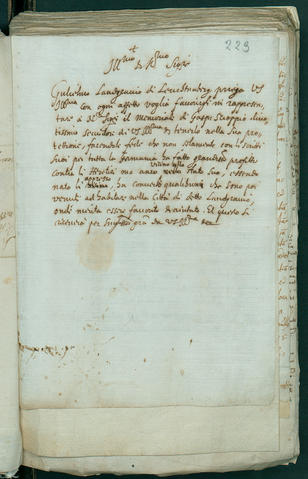 223
Ill.mo et R.mo Sig.re
Gulielmo Landgravio di Leuchtenberg prega VS
Ill.ma con ogni affetto voglia favorirlo in rappresen,
tare à il Memoriale di Gaspe Scioppio divo,
tissimo servidor di VS Ill.ma et tenerlo nella sua pro,
tettione, facendole fede che non solamente con li scritti
suoi per tutta la Germania ha fatto grandissimo profitto
contra li Heretici, ma anco nello stato suo, essendo
nato li appresso, ha convertito qualcheduni che sono per
venuti ad habitar nella Città di detto Landgravio,
onde merita esser favorito et aiutato. Et questo si
riceverà per gra da VS Ill.ma